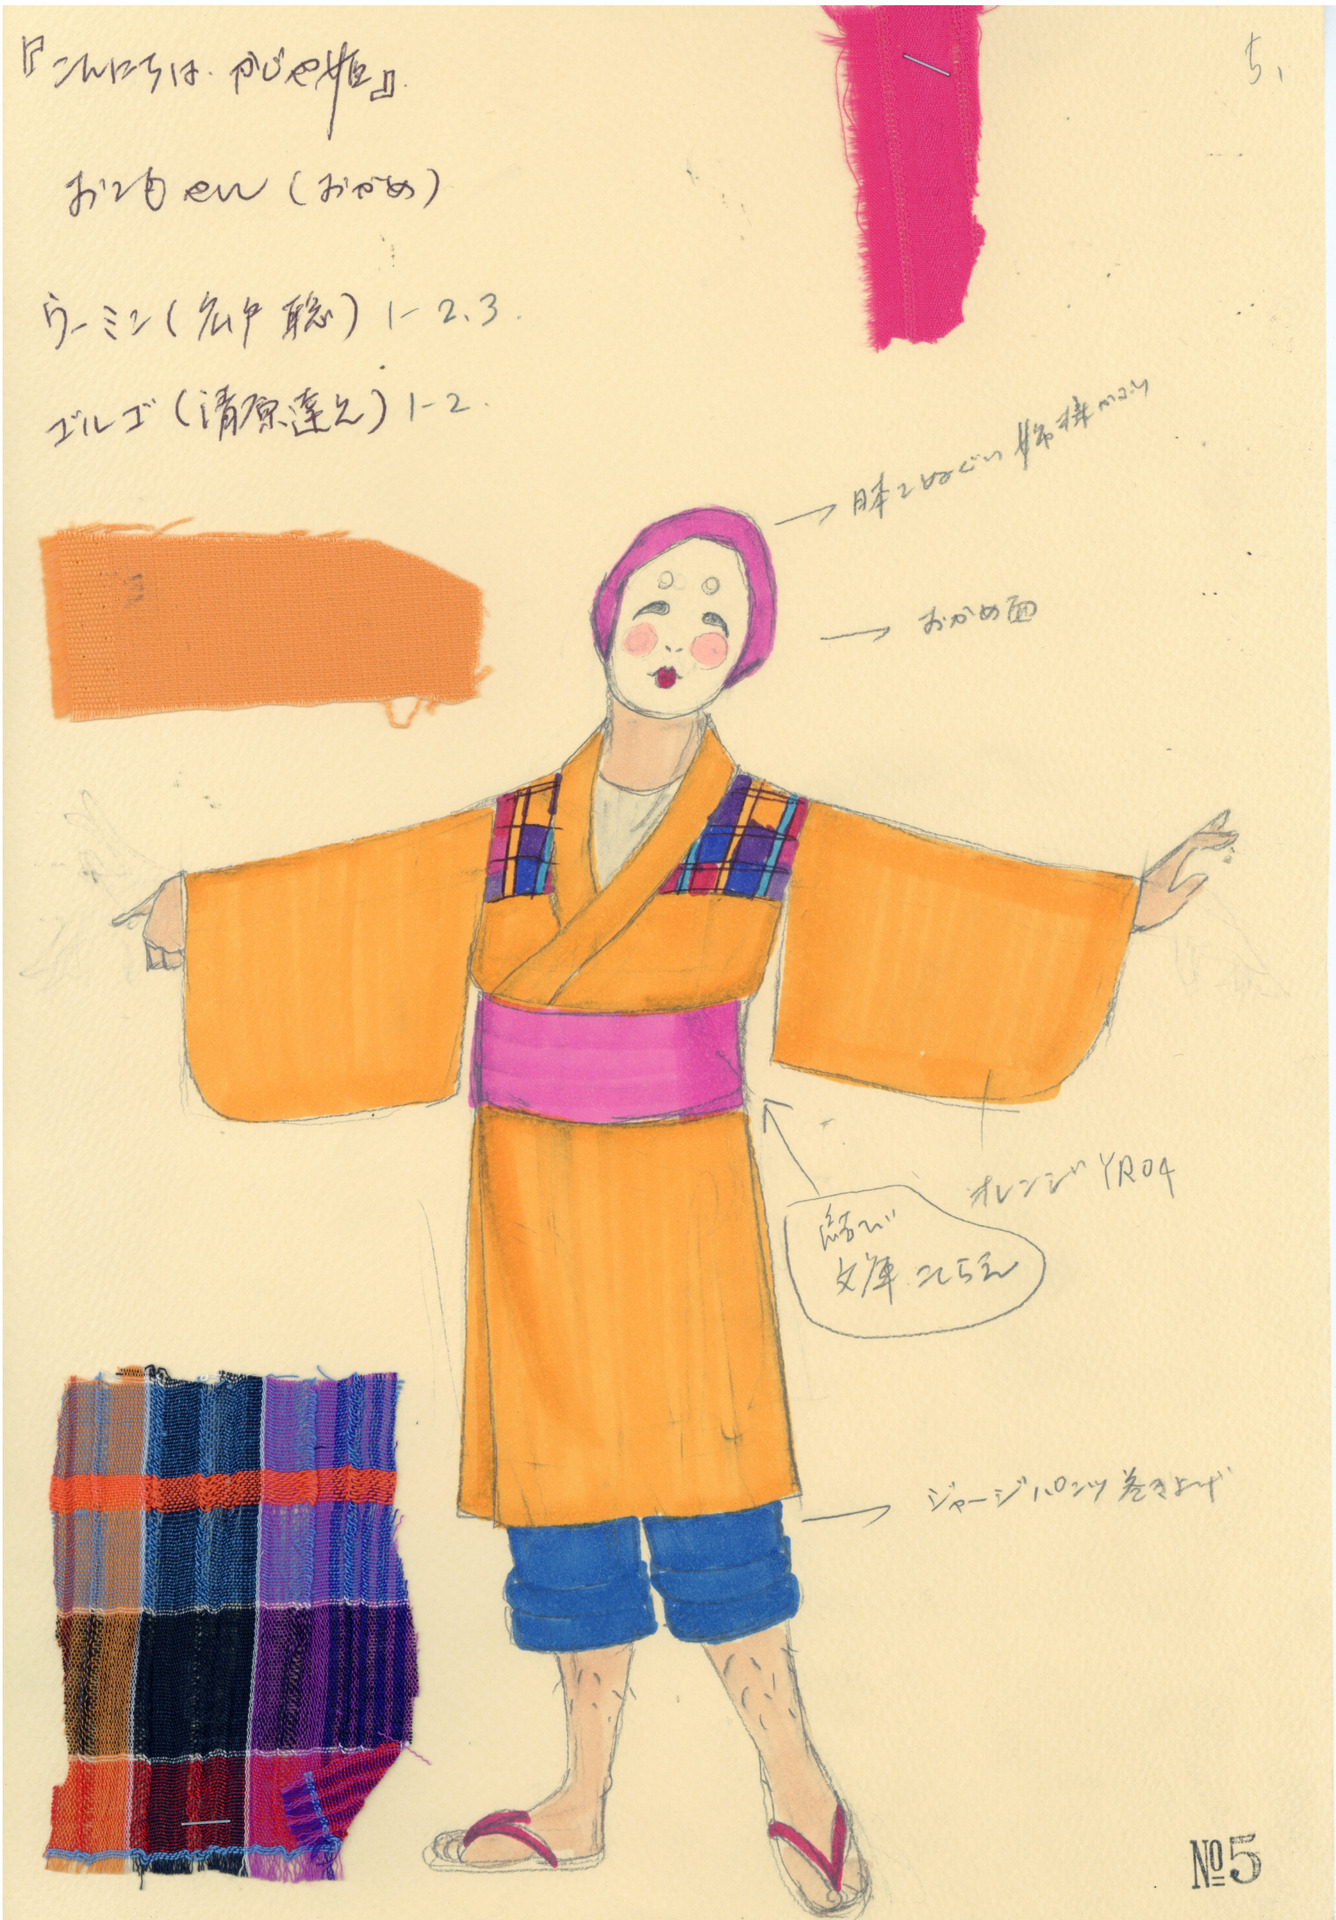 『こんにちは かじや姫』
5,
おつもてん (おかめ)
ウーミン (広戸 聡) 1-2,3.
ゴルゴ (清原達之) 1-2.
→ 日本てぬぐい 姉様かぶり
→ おかめ面
オレンジ YR04
結び
文庫
→ ジャージパンツ 巻き上げ
№5